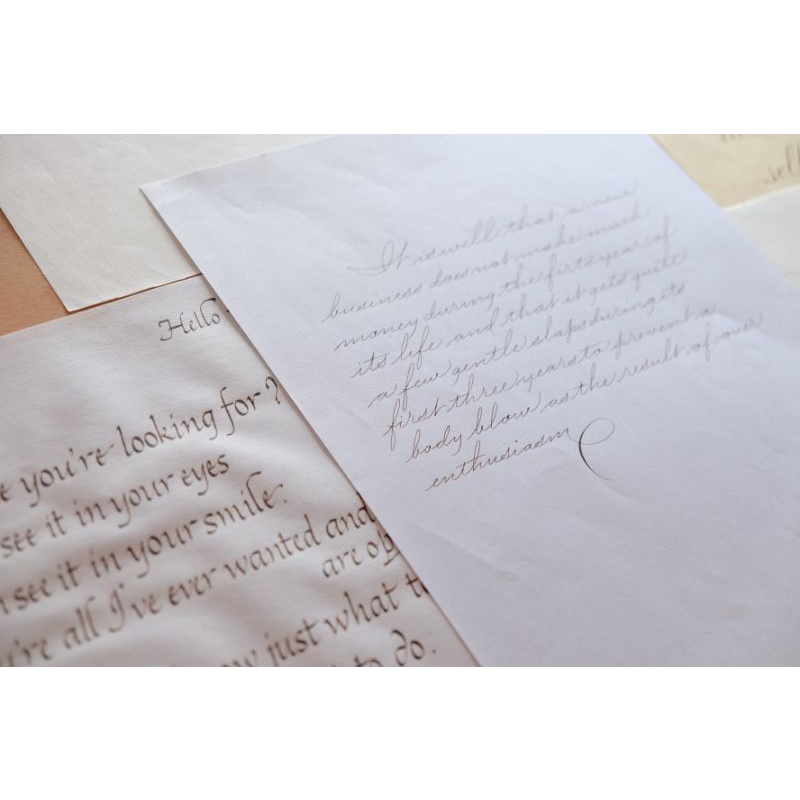 Hello
you're looking for?
see it in your eyes
see it in your smile.
all I've ever wanted and
are
just what
to do.
It is well that a new
business does not make much
money during the firts year of
its life and that it gets quite
a few gentle slaps during its
first three years to prevent a
body blow as the result of over
enthusiasm